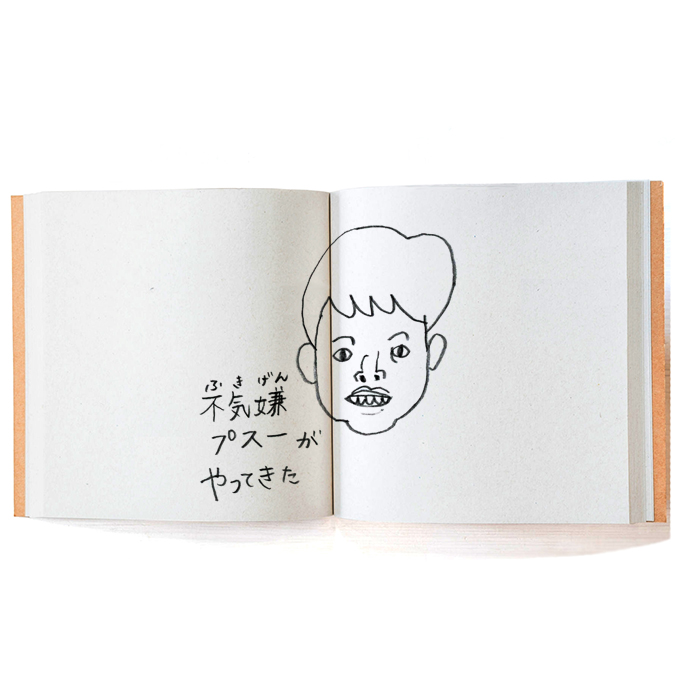 ふきげん
不気嫌
プスーが
やってきた